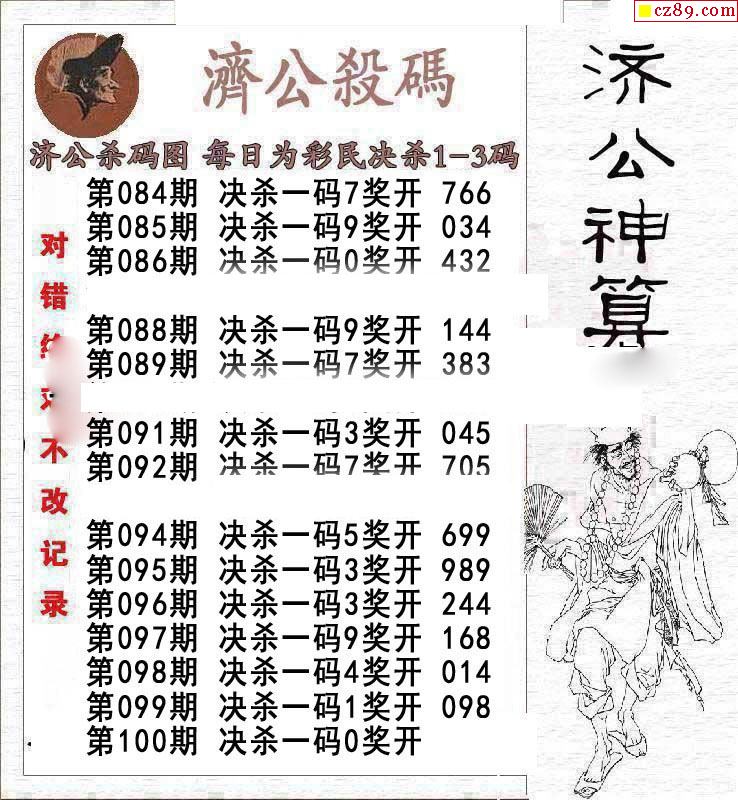 cz89.com
濟公殺碼
济公杀码图 每日为彩民决杀1-3码
第084期 决杀一码7奖开 766
第085期 决杀一码9奖开 034
第086期 决杀一码0奖开 432
第088期 决杀一码9奖开 144
第089期 决杀一码7奖开 383
第091期 决杀一码3奖开 045
第092期 决杀一码7奖开 705
第094期 决杀一码5奖开 699
第095期 决杀一码3奖开 989
第096期 决杀一码3奖开 244
第097期 决杀一码9奖开 168
第098期 决杀一码4奖开 014
第099期 决杀一码1奖开 098
第100期 决杀一码0奖开
对错 不改记录
济公神算